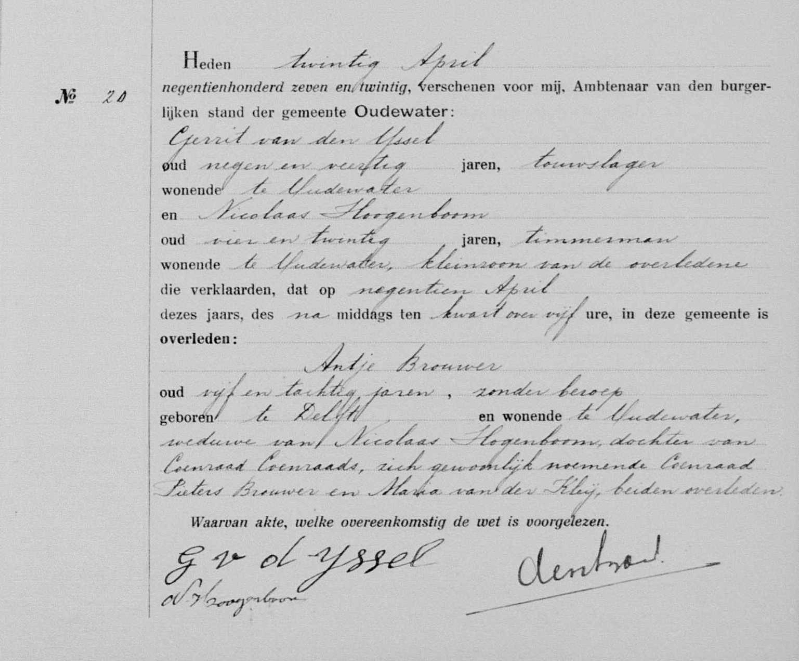 Heden twintig April
No 20 negentienhonderd zeven en twintig, verschenen voor mij, Ambtenaar van den burger-
lijken stand der gemeente Oudewater:
Gerrit van den Yssel
oud negen en veertig jaren, touwslager
wonende te Oudewater
en Nicolaas Hoogenboom
oud vier en twintig jaren, timmerman
wonende te Oudewater, kleinzoon van de overledene
die verklaarden, dat op negentien April
dezes jaars, des na middags ten kwart over vijf ure, in deze gemeente is
overleden:
Antje Brouwer
oud vijf en tachtig jaren, zonder beroep
geboren te Delft en wonende te Oudewater,
weduwe van Nicolaas Hogenboom, dochter van
Coenraad Coenraads, zich gewoonlijk noemende Coenraad
Pieters Brouwer en Maria van der Kleij, beiden overleden.
Waarvan akte, welke overeenkomstig de wet is voorgelezen.
G v d Yssel
N. Hoogenboom